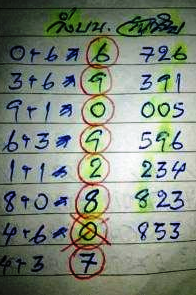 วิ่งบน.
0+6 → 6 726
3+6 → 9 391
9+1 → 0 005
6+3 → 9 596
1+1 → 2 234
8+0 → 8 823
4+6 → 0 853
4+3 7